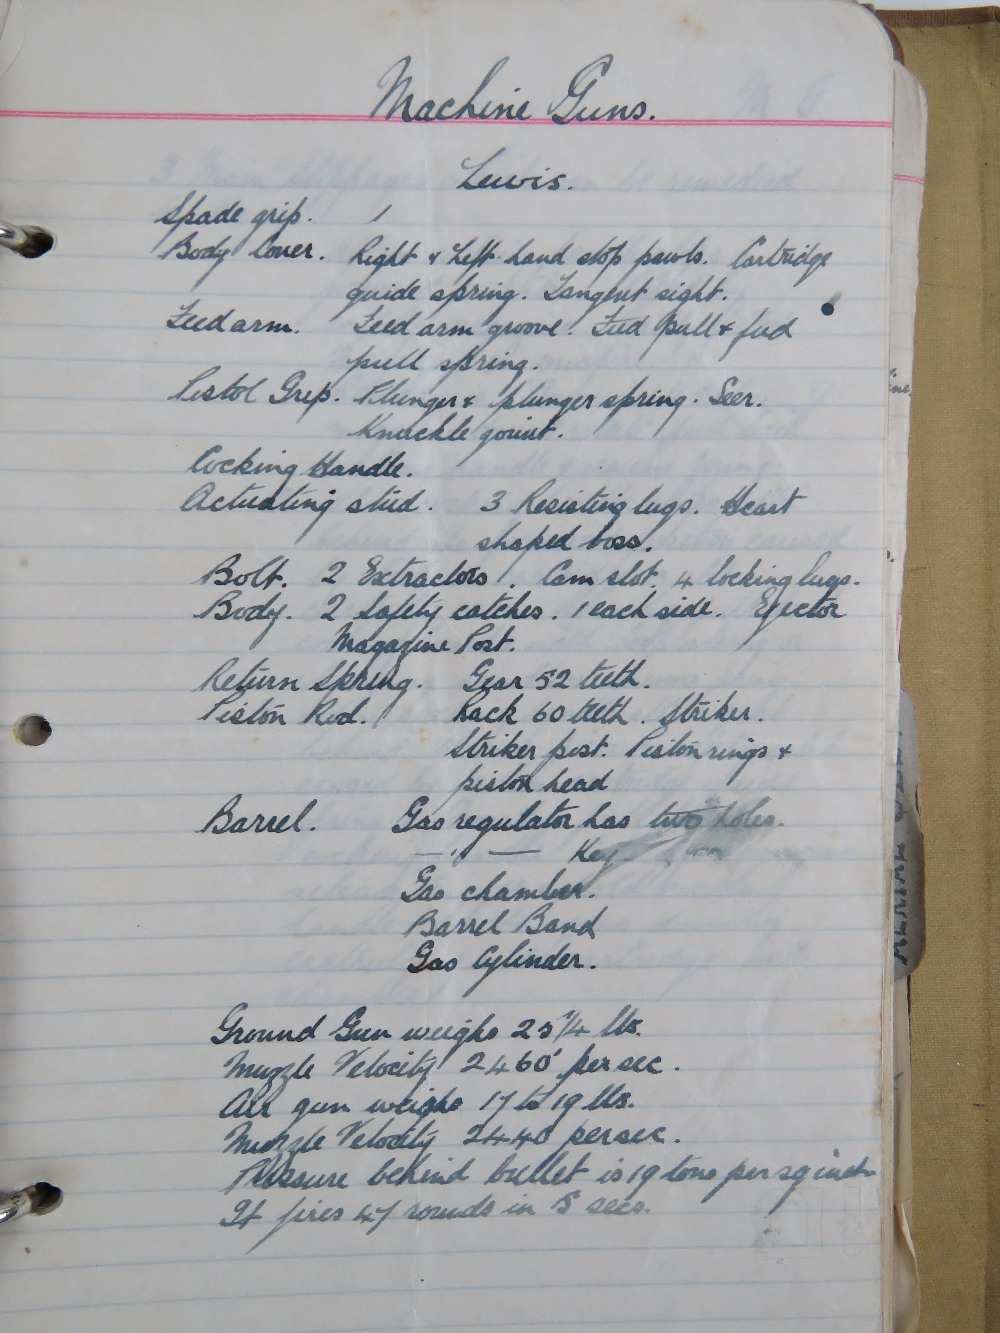 Machine Guns.
Lewis.
Spade grip. 1
Body Cover. Right & Left hand stop pawls. Cartridge
guide spring. Tangent sight.
Feed arm. Feed arm groove. Feed pull & feed
pull spring.
Pistol Grip. Plunger & plunger spring. Seer.
Knuckle joint.
Cocking Handle.
Actuating stud. 3 Resisting lugs. Heart
shaped boss.
Bolt. 2 Extractors. Cam slot. 4 locking lugs.
Body. 2 Safety catches. 1 each side. Ejector
Magazine Post.
Return Spring. Gear 52 teeth.
Piston Rod. Rack 60 teeth. Striker.
Striker post. Piston rings &
piston head
Barrel. Gas regulator has two holes.
— " — Key.
Gas chamber.
Barrel Band
Gas Cylinder.
Ground Gun weighs 25 1/4 lbs.
Muzzle Velocity 2460' per sec.
Air gun weighs 17 to 19 lbs.
Muzzle Velocity 2440' per sec.
Pressure behind bullet is 19 tons per sq inch
It fires 47 rounds in 5 secs.